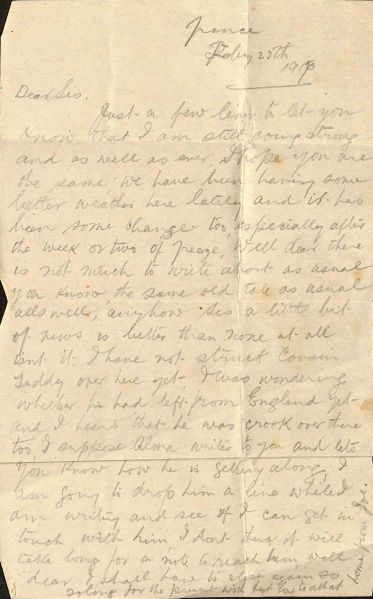 France
Feby 25th
191
Dear Sis.
Just a few lines to let you
know that I am still going strong
and as well as ever, I hope you are
the same, we have been having some
better weather here lately and it has
been some change too especially after
the week or two of freeze, well dear there
is not much to write about as usual
you know the same old tale as usual
alls well, anyhow Sis a little bit
of news is better than none at all
isnt it, I have not struck Cousin
Laddy over here yet, I was wondering
whether he had left from England yet
and I heard that he was crook over there
too, I suppose Olma writes to you and lets
you know how he is getting along, I
am going to drop him a line while I
am writing and see if I can get in
touch with him, I dont think it will
take long for a note to reach him, well
dear I shall have to close again so
so long for the present with best love to all at
home from Joe.